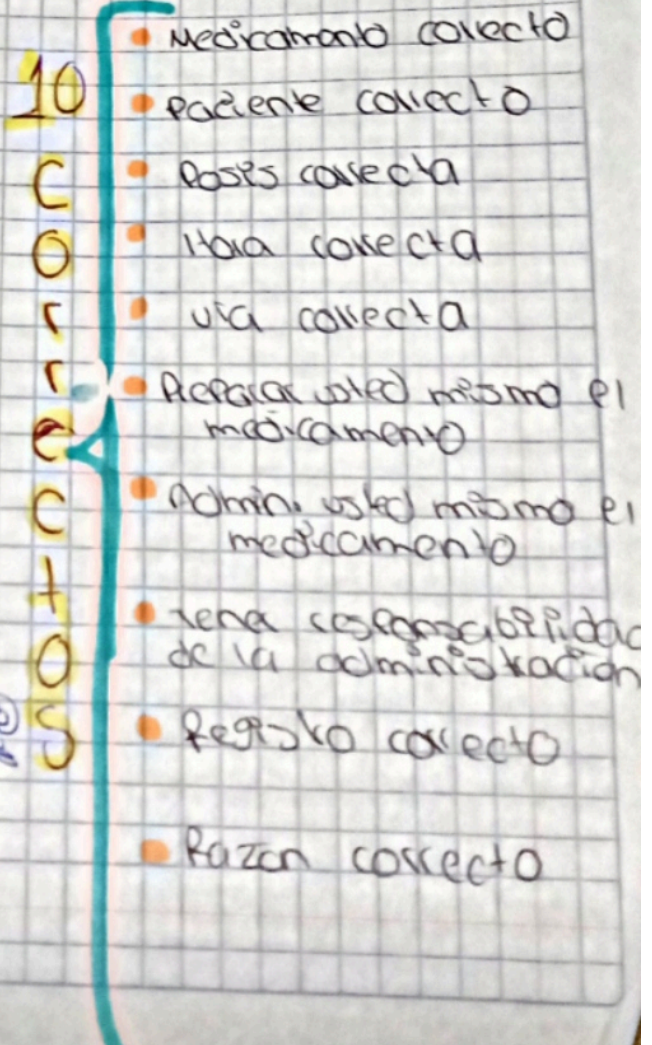 10 Correctos
Medicamento correcto
Paciente correcto
Dosis correcta
Hora correcta
via correcta
Preparar usted mismo el
medicamento
Admin. usted mismo el
medicamento
Tener responsabilidad
de la administración
Registro correcto
Razon correcto